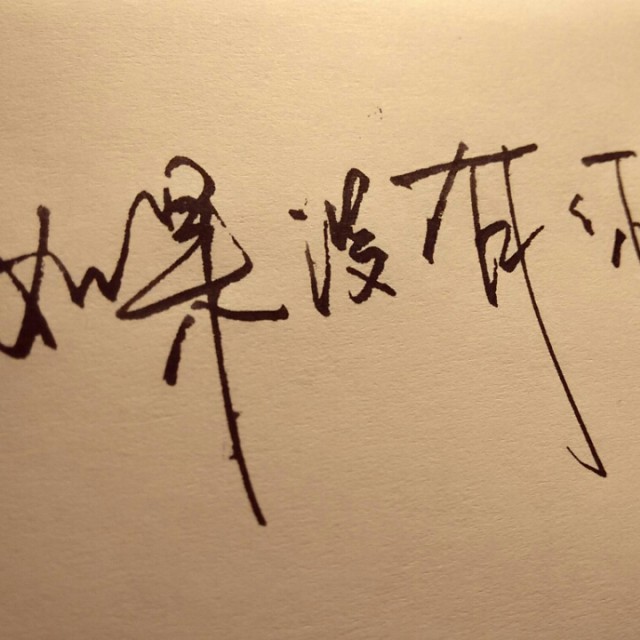 如果没有你